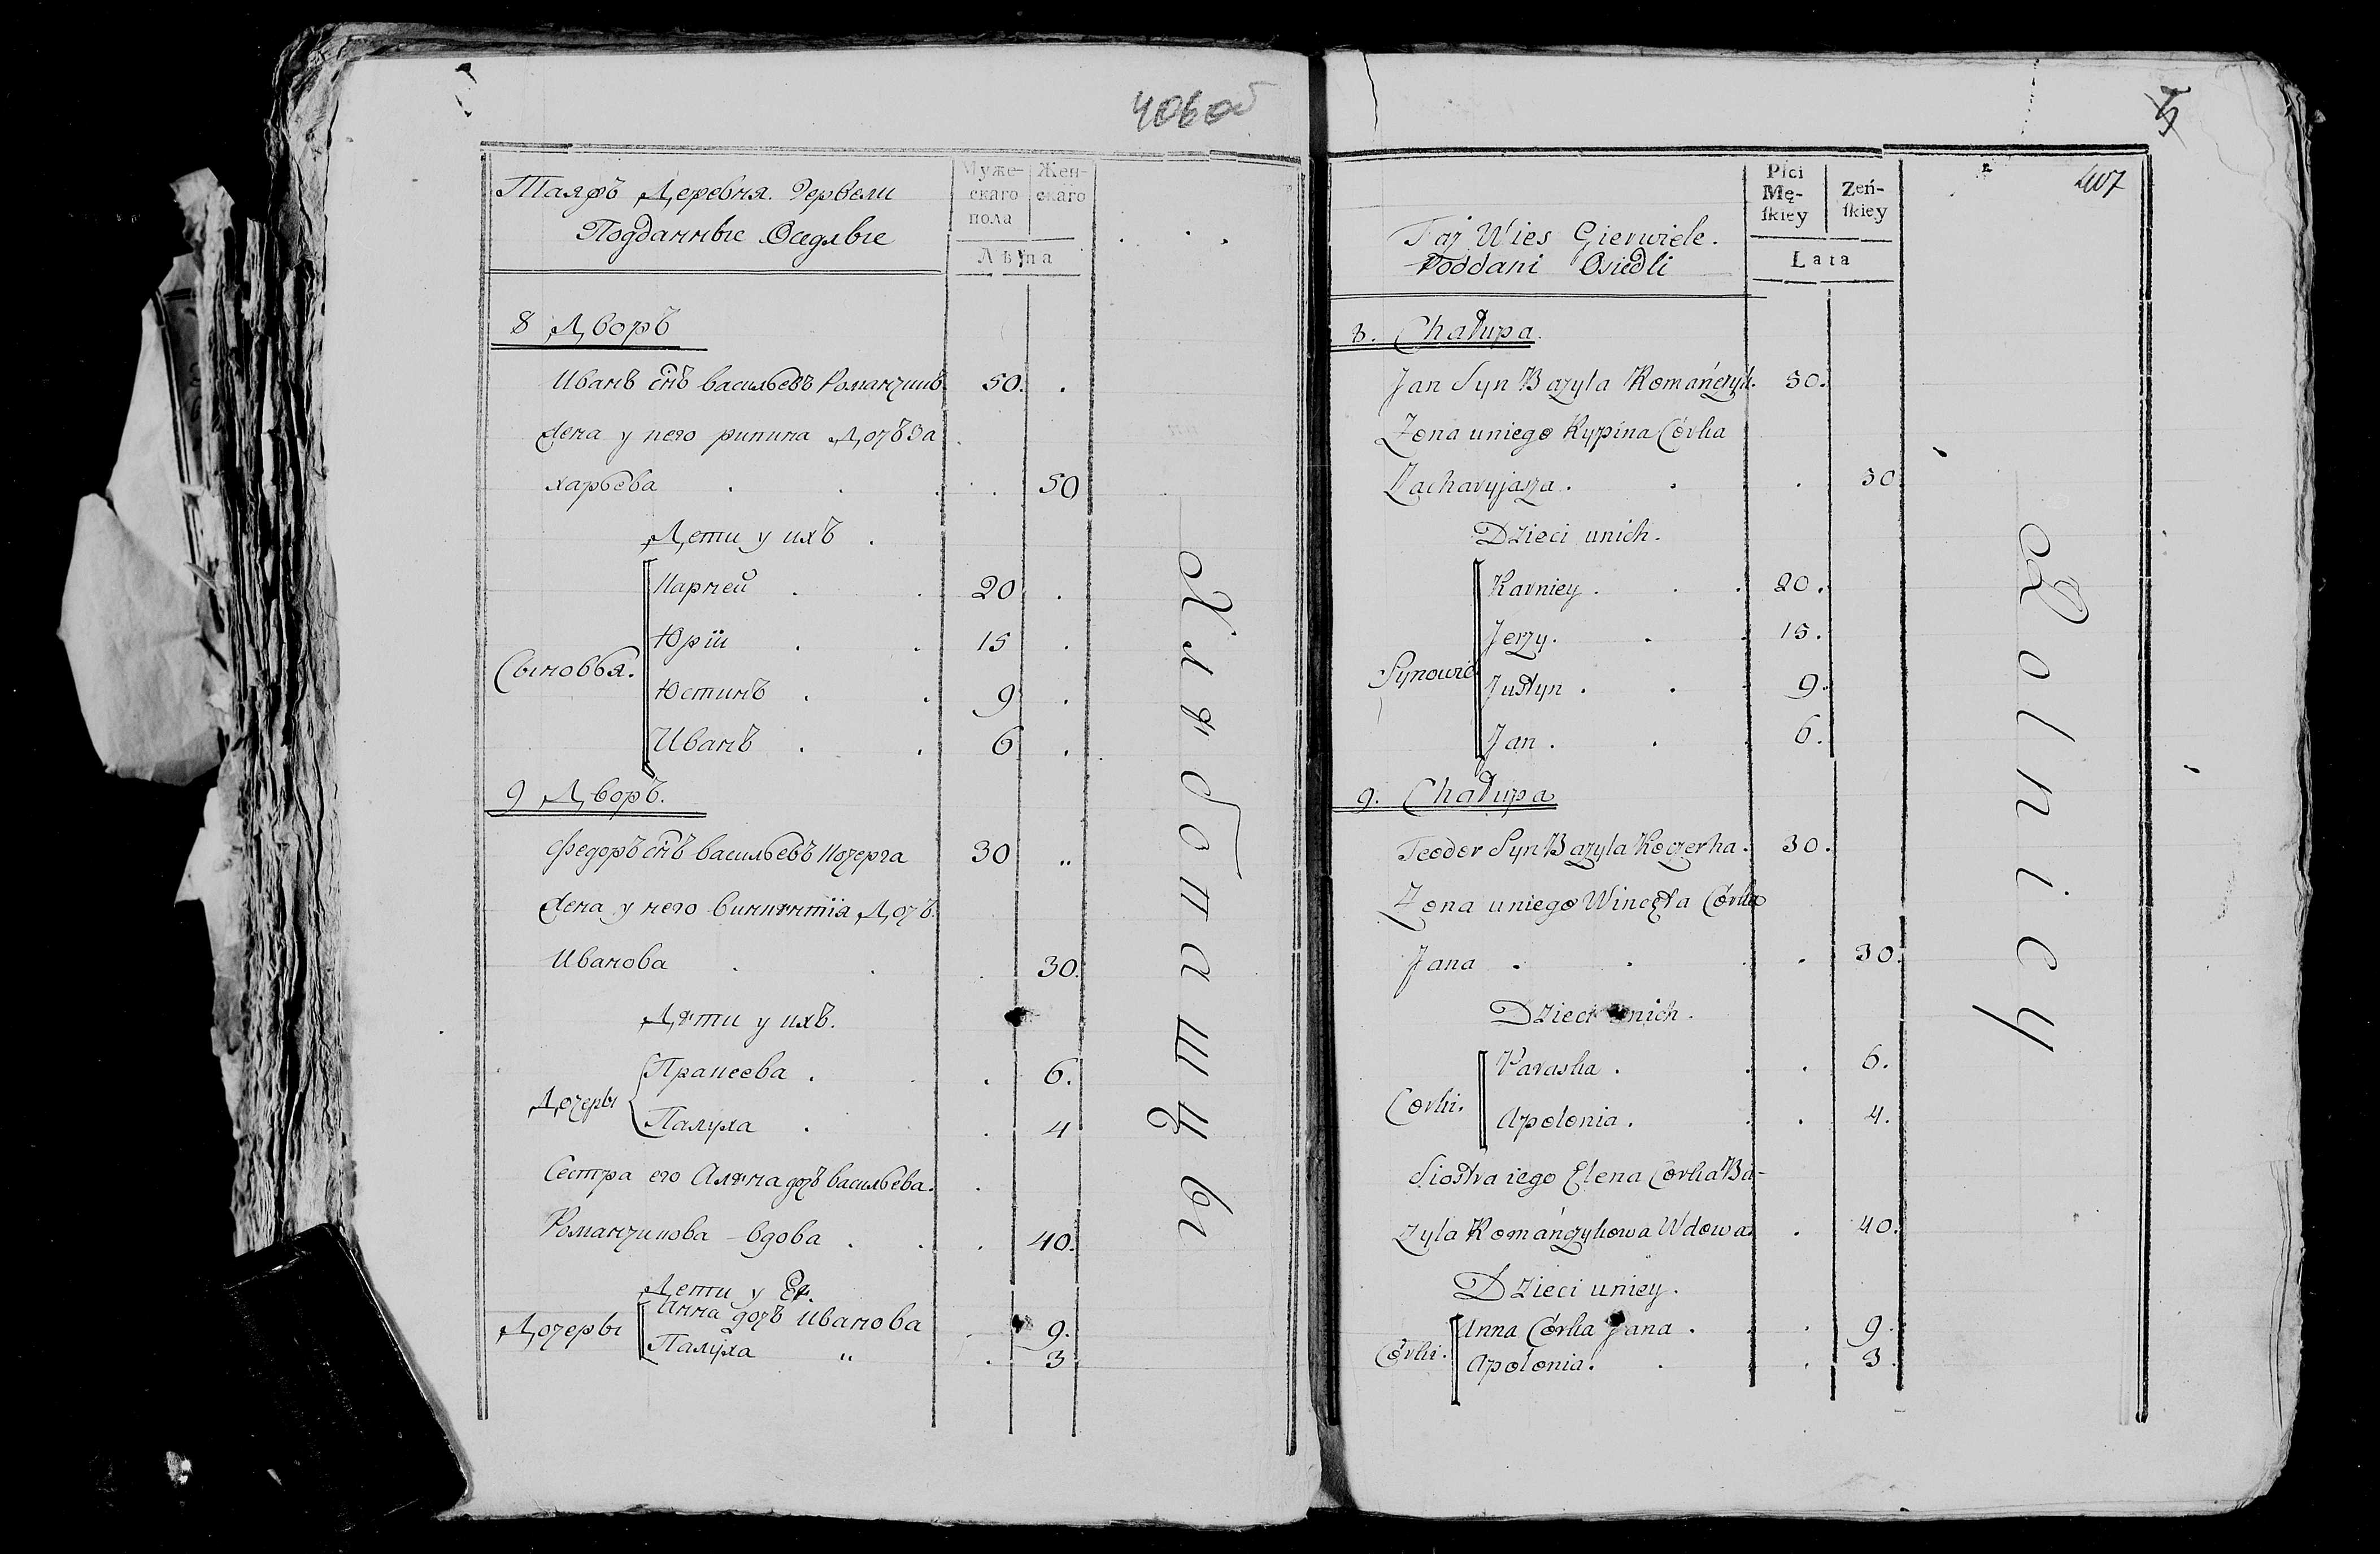 406об
Таяжъ Деревня Гервели
Подданные Оседлые
Муже-
скаго
пола
Жен-
скаго
Лѣта
8 Дворъ
Иванъ снъ васильевъ Романчикъ 50.
Жена у него рипина Дочь За
харьева 50
Дети у ихъ
Сыновья.
Карней 20
Юрiй 15
Юстинъ 9
Иванъ 6
9 Дворъ.
Федоръ снъ васильевъ Кочерга 30 „
Жена у него винцентiя Дочь
Иванова 30.
Дѣти у ихъ.
Дочеры
Праксева 6.
Палуха 4
Сестра его Алѣна дочь васильева.
Романчикова вдова 40.
Дети у Ея.
Дочеры
Анна дочь Иванова 9.
Палуха „ 3
Хлѣбопашцы
5
407
Taż Wies Gierwiele.
Poddani Osiedli
Płci
Mę-
ſkiey
Żeń-
ſkiey
Lata
8. Chałupa.
Jan Syn Bazyla Romańczyk. 50.
Żona uniego Rypina Córka
Zacharyjasza. 50
Dzieci unich.
Synowie
Karniey. 20.
Jerzy. 15.
Justyn. 9.
Jan. 6.
9. Chałupa
Teodor Syn Bazyla Koczerha. 30.
Żona uniego Wincęta Córka
Jana 30.
Dzieci unich.
Córki.
Paraska. 6.
Apolonia. 4.
Siostra iego Elena Córka Ba-
zyla Romańczykowa Wdowa 40.
Dzieci uniey.
Córki.
Anna Córka Jana. 9.
Apolonia. 3.
Rolnicy